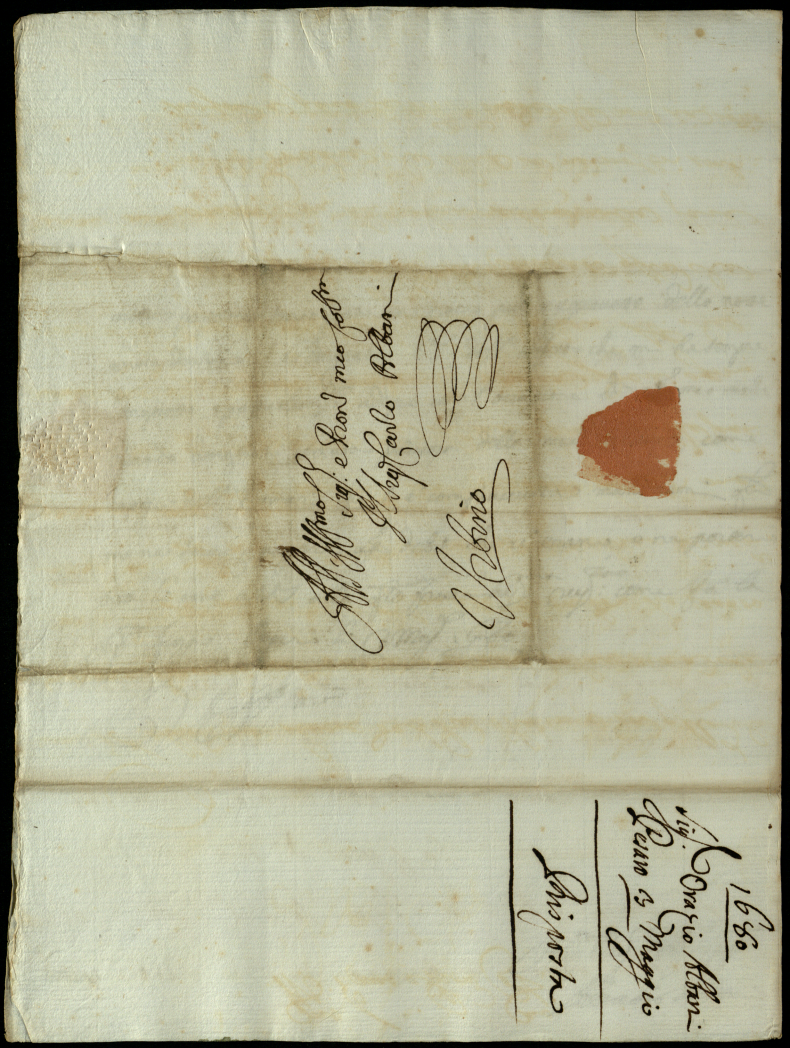 All Ill.mo Sig.r
Sig.r e Pron mio Col.mo
Il Sig.r Carlo Albani
Urbino
1680
Sig.r Orazio Albani
Pesaro 13 Maggio
Risposta